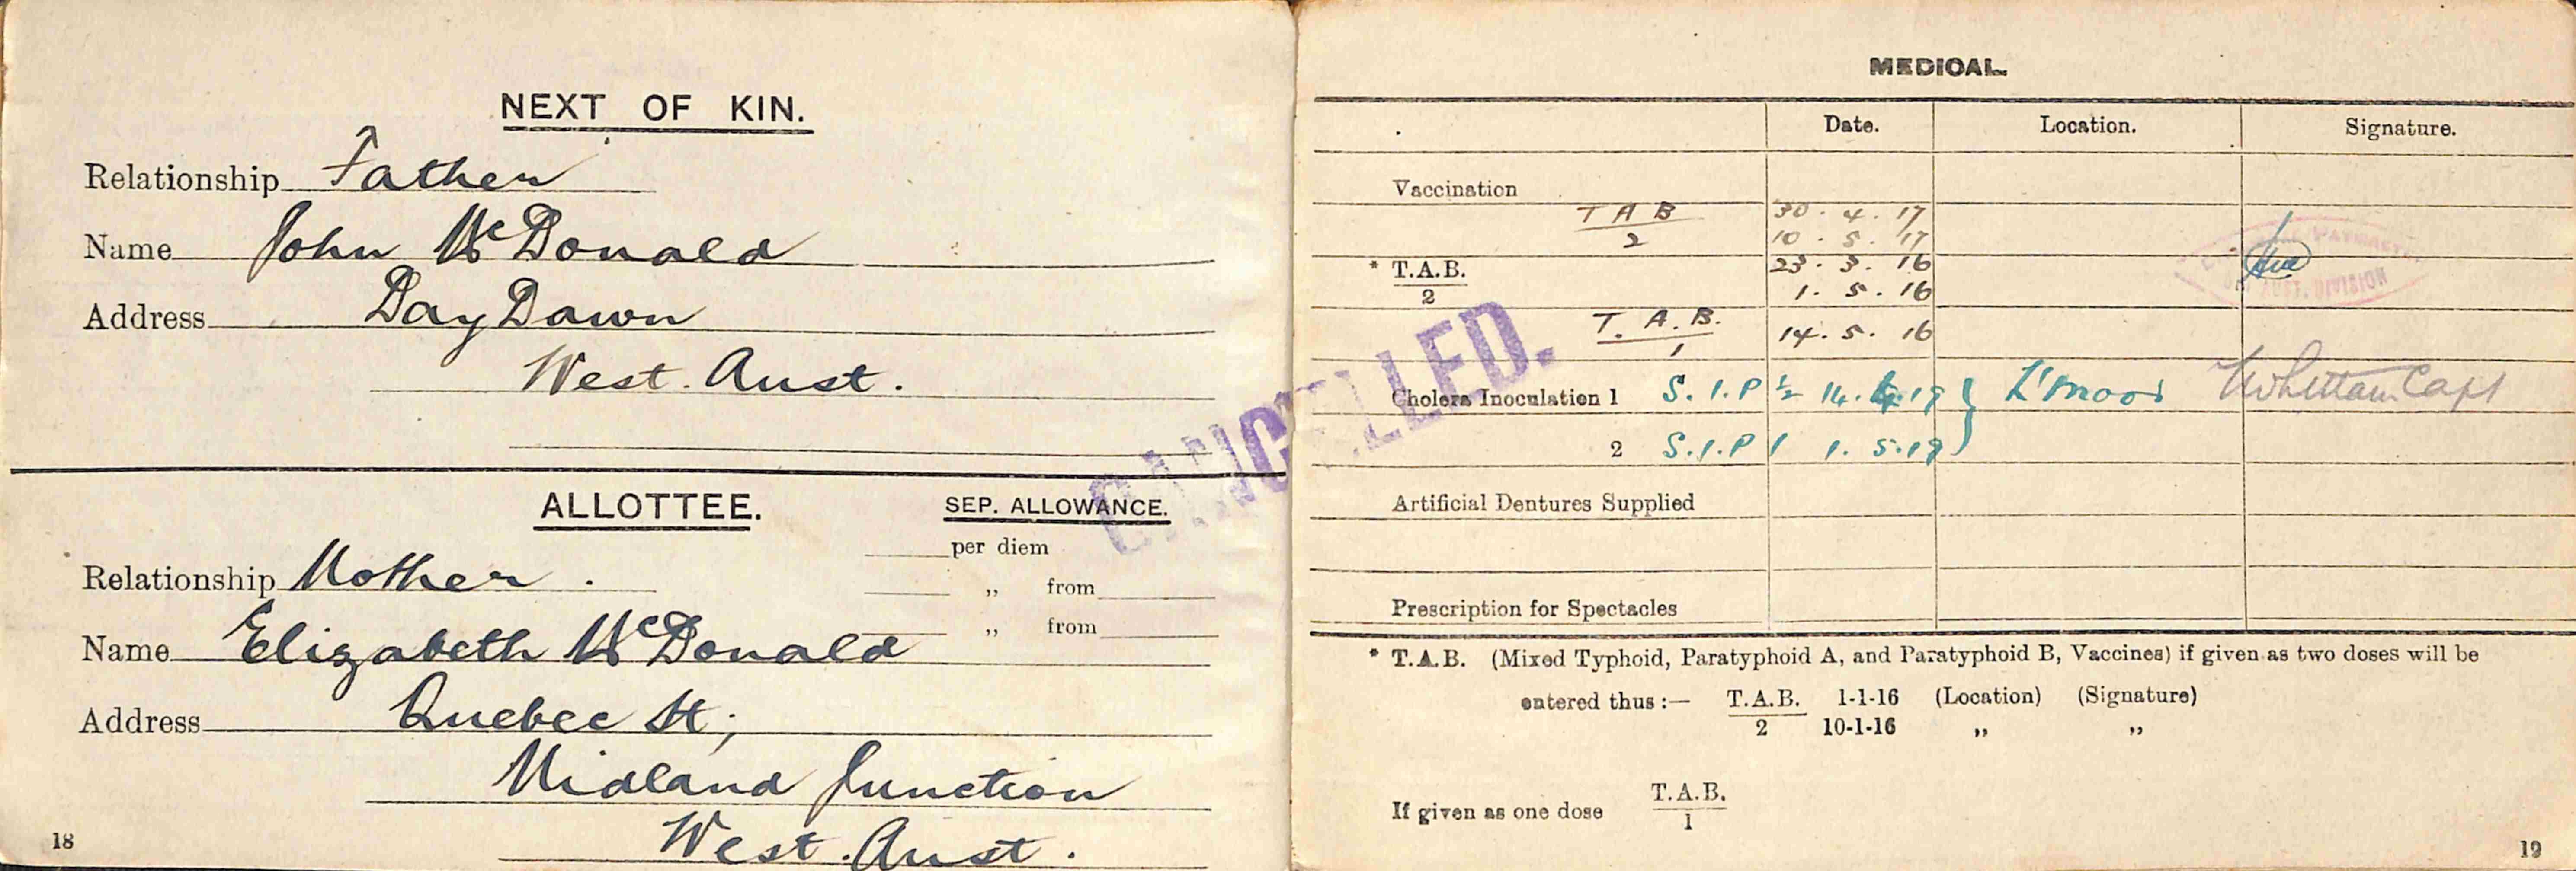 NEXT OF KIN.
Relationship Father
Name John McDonald
Address Day Dawn
West. Aust.
ALLOTTEE.
SEP. ALLOWANCE.
per diem
Relationship Mother.
„ from
Name Elizabeth McDonald
„ from
Address Quebec St;
Midland Junction
West. Aust.
18
CANCELLED.
MEDICAL.
Date. Location. Signature.
Vaccination
T A B 30. 4. 17
2 10. 5. 17
* T.A.B. 23. 3. 16
2 1. 5. 16
AUST. DIVISION
T. A. B. 14. 5. 16
1
Cholera Inoculation 1 S.I.P ½ 14. 4. 19 Capt
2 S.I.P 1 1. 5. 19
Artificial Dentures Supplied
Prescription for Spectacles
* T.A.B. (Mixed Typhoid, Paratyphoid A, and Paratyphoid B, Vaccines) if given as two doses will be
entered thus :— T.A.B. 1-1-16 (Location) (Signature)
2 10-1-16 „ „
If given as one dose T.A.B.
1
19